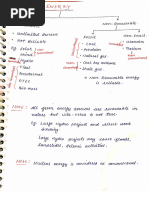 ENERGY
Non-Renewable
Unlimited Source
Fossil
Nuclear
Not Reliable
Coal
Uranium
Eg Solar
Petroleum
Thorium
Wind
Natural gas
Hydro
Coal bed methane
Tidal
Shale gas
Geothermal
Non Renewable energy
OTEC
is reliable
Bio mass
Note: All green energy sources are renewable in
nature but vice-versa is not true
Eg. Large Hydro project and solar wood
burning
Large Hydro projects may cause growth,
Landslide, Seismic activities.
Note: Nuclear energy is considered as conventional.